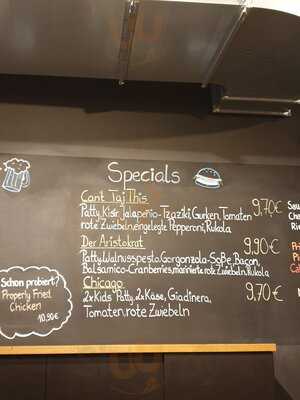 Specials
Cant Taj This
Patty, Kısır, Jalapeño-Tzaziki, Gurken, Tomaten 9,70€
rote Zwiebeln, eingelegte Pepperoni, Rukola
Der Aristokrat 9,90€
Patty, Walnusspesto, Gorgonzola-Soße, Bacon,
Balsamico-Cranberries, marinierte rote Zwiebeln, Rukola
Chicago 9,70€
2x Kids' Patty, 2x Käse, Giadinera,
Tomaten, rote Zwiebeln
Schon probiert?
Properly Fried
Chicken
10,90€